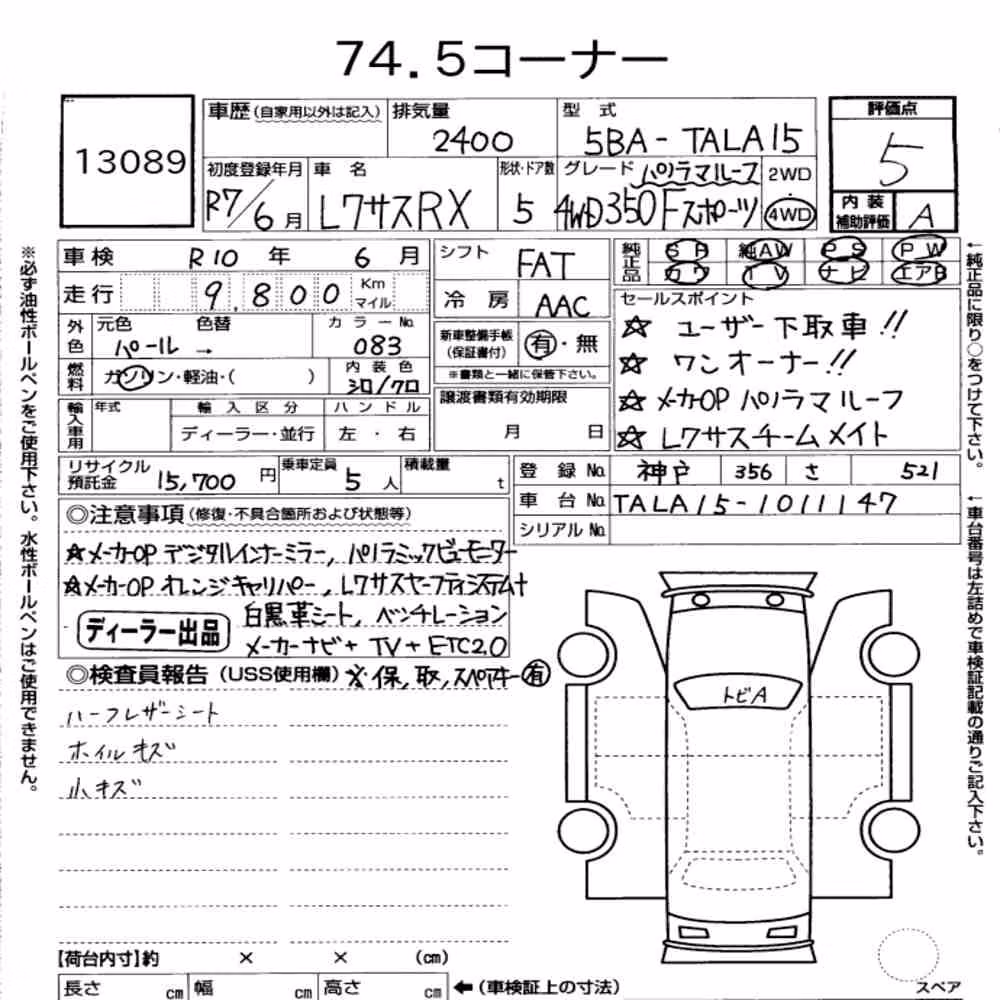 74.5コーナー
13089
車歴(自家用以外は記入)
排気量
2400
型 式
5BA-TALA15
評価点
5
初度登録年月
R7/6月
車 名
レクサスRX
形状・ドア数
5
グレード パノラマルーフ
4WD350Fスポーツ
2WD
4WD
内 装
補助評価
A
車検 R10 年 6 月
シフト
FAT
純正品
SR 純AW PS PW
カワ TV ナビ エアB
走行 9,800 Km
マイル
冷 房
AAC
セールスポイント
☆ ユーザー下取車!!
☆ ワンオーナー!!
☆ メーカーOPパノラマルーフ
☆ レクサスチームメイト
外色
元色 色替
パール →
カラーNo.
083
新車整備手帳
(保証書付)
有・無
※書類と一緒に保管下さい。
燃料
ガソリン・軽油・( )
内 装 色
シロ/クロ
譲渡書類有効期限
月 日
輸入車用
年式
輸 入 区 分
ディーラー・並行
ハ ン ド ル
左 ・ 右
リサイクル
預託金 15,700 円
乗車定員
5 人
積載量
t
登 録 No. 神戸 356 さ 521
車 台 No. TALA15-1011147
シリアル No.
◎注意事項(修復・不具合箇所および状態等)
☆メーカーOP デジタルインナーミラー, パノラミックビューモニター
☆メーカーOP オレンジキャリパー, レクサスセーフティシステム+
ディーラー出品
白黒革シート, ベンチレーション
メーカーナビ+TV+ETC2.0
◎検査員報告(USS使用欄) ※保,取,スペアキー有
ハーフレザーシート
ホイルキズ
小キズ
トビA
【荷台内寸】約 × × (cm)
長さ cm 幅 cm 高さ cm ←(車検証上の寸法)
スペア
※必ず油性ボールペンをご使用下さい。水性ボールペンはご使用できません。
←純正品に限り○をつけて下さい。
←車台番号は左詰めで車検証記載の通りご記入下さい。